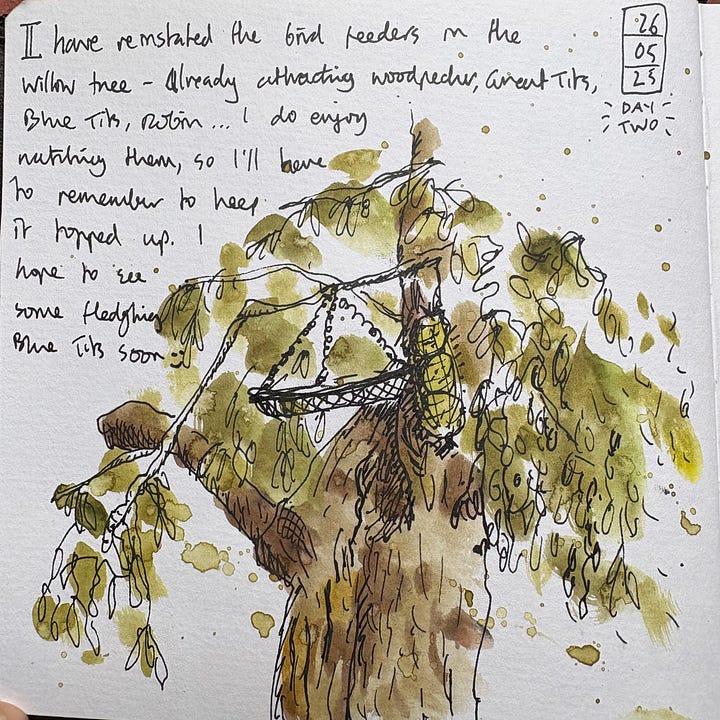 I have reinstated the bird feeders in the
willow tree - Already attracting woodpecker, Great Tits,
Blue Tits, Robin... I do enjoy
watching them, so I'll have
to remember to keep
it topped up. I
hope to see
some fledgling
Blue Tits soon :)
26
05
25
DAY
TWO